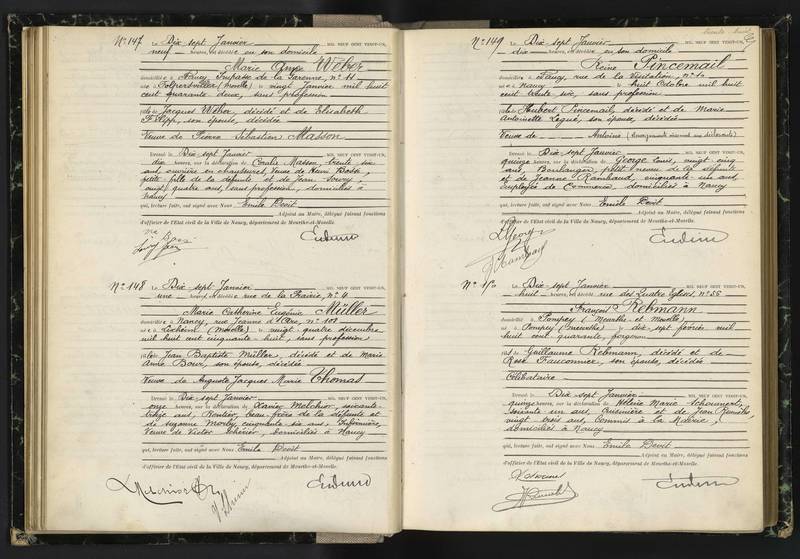 N° 147 Le Dix-sept Janvier MIL NEUF CENT VINGT-UN,
neuf heures, est décédée en son domicile
Marie Weber
domiciliée à Nancy Impasse de la Garenne, n° 11
née à (Moselle) le vingt Janvier mil huit
cent quarante deux, sans profession
fille de Jacques Weber, décédé et de Elisabeth
son épouse, décédée
Veuve de Pierre Sébastien Masson
Dressé le Dix-sept Janvier MIL NEUF CENT VINGT-UN,
dix heures, sur la déclaration de Coralie Masson, trente six
ans, ouvrière en chaussures, Veuve de Henri
petite-fille de la défunte et de Jean
vingt quatre ans, sans profession, domiciliés à
Nancy
qui, lecture faite, ont signé avec Nous Emile Devit
Adjoint au Maire, délégué faisant fonctions
d'officier de l'Etat civil de la Ville de Nancy, département de Meurthe-et-Moselle.
N° 148 Le Dix-sept Janvier MIL NEUF CENT VINGT-UN,
une heures, est décédée rue de la Prairie, n° 4
Marie Catherine Eugénie Müller
domiciliée à Nancy, rue Jeanne d'Arc, n° 108
née à Lixheim (Moselle) le vingt quatre décembre
mil huit cent cinquante huit, sans profession
fille de Jean Baptiste Müller, décédé et de Marie
Anne Bour, son épouse, décédée
Veuve de Auguste Jacques Marie Thomas
Dressé le Dix-sept Janvier MIL NEUF CENT VINGT-UN,
onze heures, sur la déclaration de Xavier Melchior, soixante-
ans, beau-frère de la défunte et
de Suzanne cinquante six ans, Infirmière,
Veuve de Victor domiciliés à Nancy
qui, lecture faite, ont signé avec Nous Emile Devit
Adjoint au Maire, délégué faisant fonctions
d'officier de l'Etat civil de la Ville de Nancy, département de Meurthe-et-Moselle.
N° 149 Le Dix-sept Janvier MIL NEUF CENT VINGT-UN,
dix heures, est décédée en son domicile
Reine Pincemail
domiciliée à Nancy, rue de la Visitation, n° 10
née à Nancy le huit Octobre mil huit
cent trente six, sans profession
fille de Hubert Pincemail, décédé et de Marie
Antoinette Legué, son épouse, décédée
Veuve de Antoine (renseignements inconnus aux déclarants)
Dressé le Dix-sept Janvier MIL NEUF CENT VINGT-UN,
quinze heures, sur la déclaration de George Louis, vingt cinq
ans, Boulanger, petit neveu de la défunte
et de Jeanne Rambaud, cinquante un ans,
Employée de Commerce, domiciliés à Nancy
qui, lecture faite, ont signé avec Nous Emile Devit
Adjoint au Maire, délégué faisant fonctions
d'officier de l'Etat civil de la Ville de Nancy, département de Meurthe-et-Moselle.
L George
N° 150 Le Dix-sept Janvier MIL NEUF CENT VINGT-UN,
huit heures, est décédé rue des Quatre Eglises, n° 56
François Rebmann
domicilié à Pompey (Meurthe et Moselle)
né à Pompey (Meurthe) le dix-sept février mil
huit cent quarante, forgeron
fils de Guillaume Rebmann, décédé et de
Rose Fauconnier, son épouse, décédée
Célibataire
Dressé le Dix-sept Janvier MIL NEUF CENT VINGT-UN,
quinze heures, sur la déclaration de Marie
soixante un ans, Cuisinière et de Jean
vingt trois ans, Commis à la Mairie,
domiciliés à Nancy
qui, lecture faite, ont signé avec Nous Emile Devit
Adjoint au Maire, délégué faisant fonctions
d'officier de l'Etat civil de la Ville de Nancy, département de Meurthe-et-Moselle.